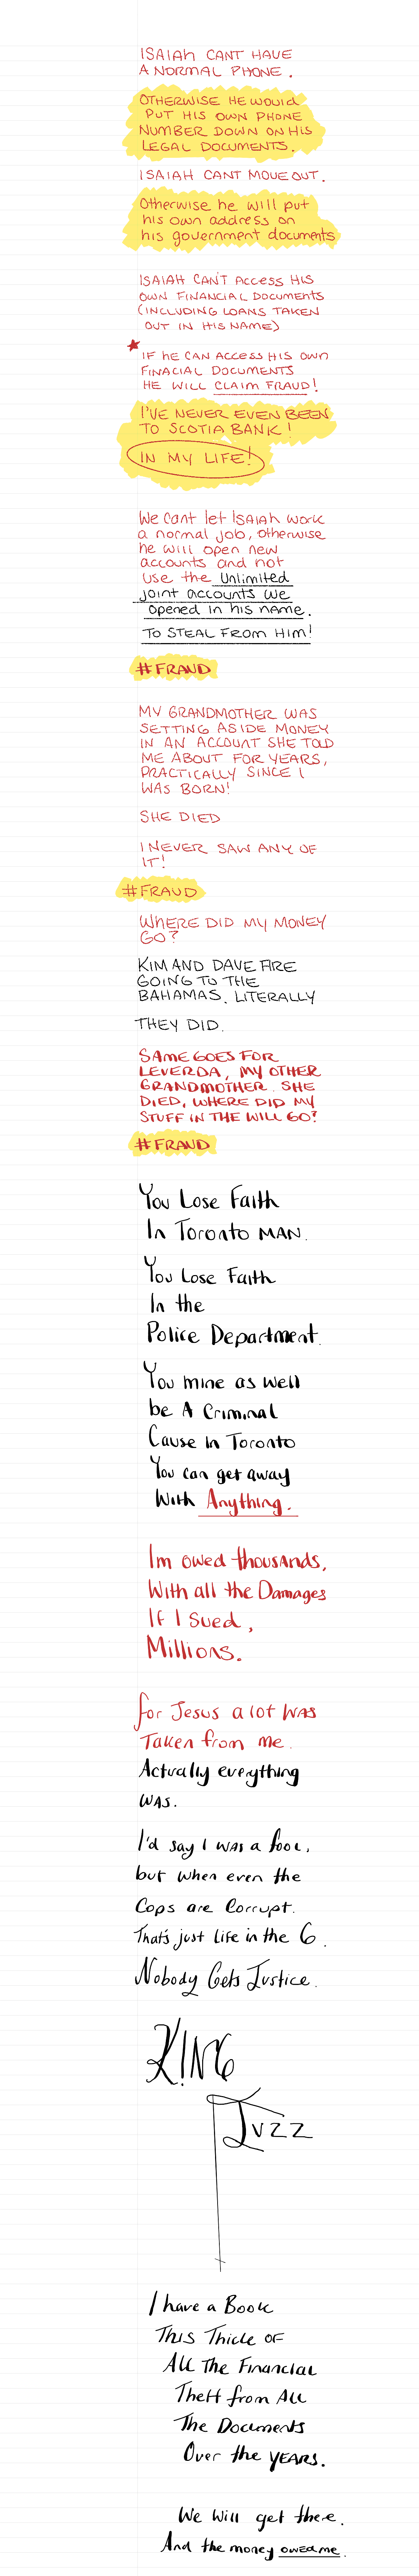 ISAIAH CANT HAVE
A NORMAL PHONE.
OTHERWISE HE WOULD
PUT HIS OWN PHONE
NUMBER DOWN ON HIS
LEGAL DOCUMENTS.
ISAIAH CANT MOVE OUT.
Otherwise he will put
his own address on
his government documents
ISAIAH CAN'T ACCESS HIS
OWN FINANCIAL DOCUMENTS
(INCLUDING LOANS TAKEN
OUT IN HIS NAME)
IF HE CAN ACCESS HIS OWN
FINACIAL DOCUMENTS
HE WILL CLAIM FRAUD!
I'VE NEVER EVEN BEEN
TO SCOTIA BANK!
IN MY LIFE!
We cant let ISAIAH work
a normal job, otherwise
he will open new
accounts and not
use the unlimited
joint accounts we
opened in his name.
TO STEAL FROM HIM!
#FRAUD
MY GRANDMOTHER WAS
SETTING ASIDE MONEY
IN AN ACCOUNT SHE TOLD
ME ABOUT FOR YEARS,
PRACTICALLY SINCE I
WAS BORN!
SHE DIED
I NEVER SAW ANY OF
IT!
#FRAUD
WHERE DID MY MONEY
GO?
KIM AND DAVE ARE
GOING TO THE
BAHAMAS. LITERALLY
THEY DID.
SAME GOES FOR
LEVERDA, MY OTHER
GRANDMOTHER. SHE
DIED, WHERE DID MY
STUFF IN THE WILL GO?
#FRAUD
You Lose Faith
In Toronto MAN.
You Lose Faith
In the
Police Department.
You mine as well
be A Criminal
Cause In Toronto
You can get away
With Anything.
Im owed thousands,
With all the Damages
If I Sued,
Millions.
for Jesus a lot WAS
Taken from me.
Actually everything
WAS.
I'd say I WAS a fool,
but when even the
Cops are Corrupt.
That's just Life in the 6.
Nobody Gets Justice.
KING
Juzz
I have a Book
This Thick OF
All The Financial
Theft from All
The Documents
Over the YEARS.
We Will get there.
And the money owed me.